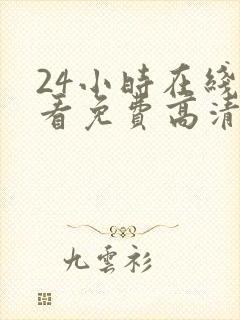 24小時在綫
看免費高清
九雲衫